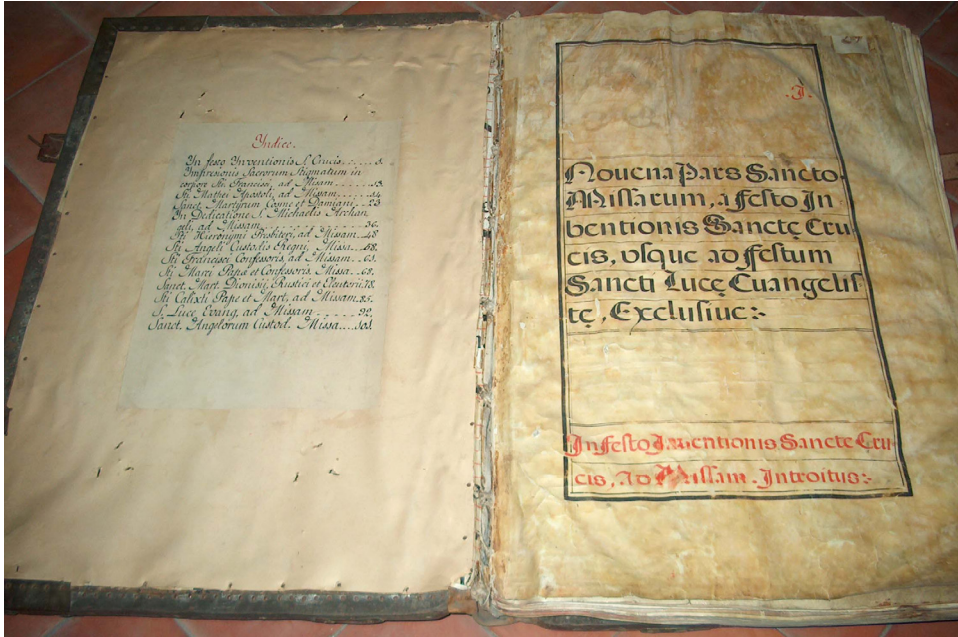 Yndice.
Yn festo Ynventionis S. Crucis.....
Ympresionis Sacrorum Stigmatum in
corpore Sti. Francisci, ad Missam.......13.
Sti. Mathei Apostoli, ad Missam....
Sanct. Martyrum Cosme et Damiani..23
In Dedicatione S. Michaelis Archan
geli, ad Missam............36.
Sti. Hieronymi Presbiteri, ad Missam..48
Sti. Angeli Custodis Regni, Missa..58.
Sti. Francisci Confessoris ad Missam...63.
Sti. Marci Papæ et Confessoris Missa..68.
Sanct. Mart. Dionisii, Rustici et Eleuterii.78.
Sti. Calixti Papæ et Mart. ad Missam.85.
S. Luce Evang. ad Missam.......92.
Sanct. Angelorum Custod. Missa....101.
.I.
Novena Pars Sancto
Missarum, a festo In
ventionis Sanctę Cru
cis, vsque ad festum
Sancti Lucę Euangelis
tę, Exclusiue:~
In festo Inventionis Sancte Cru
cis, Ad Missam. Introitus:~